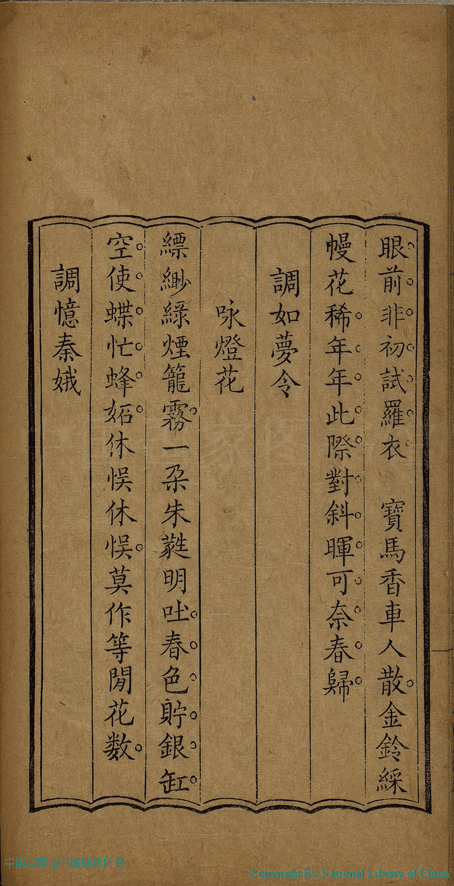 眼前非初試羅衣　寶馬香車人散金鈴綵
幔花稀年年此際對斜暉可奈春歸
調如夢令
咏燈花
縹緲綠煙籠霧一朶朱蕤明吐春色貯銀缸
空使蝶忙蜂妬休悞休悞莫作等閒花数
調憶秦娥
Copyright By National Library of China